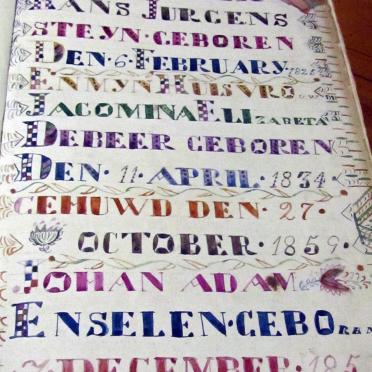 HANS JURGENS
STEYN·GEBOREN
DEN·6·FEBRUARY·
EN MYN HUISVRO
JACOMINA ELIZABETA
DEBEER GEBOREN
DEN·11·APRIL·1834·
GEHUWD DEN·27·
OCTOBER·1859·
JOHAN ADAM
ENSELEN·GEBOREN
7·DECEMBER·185